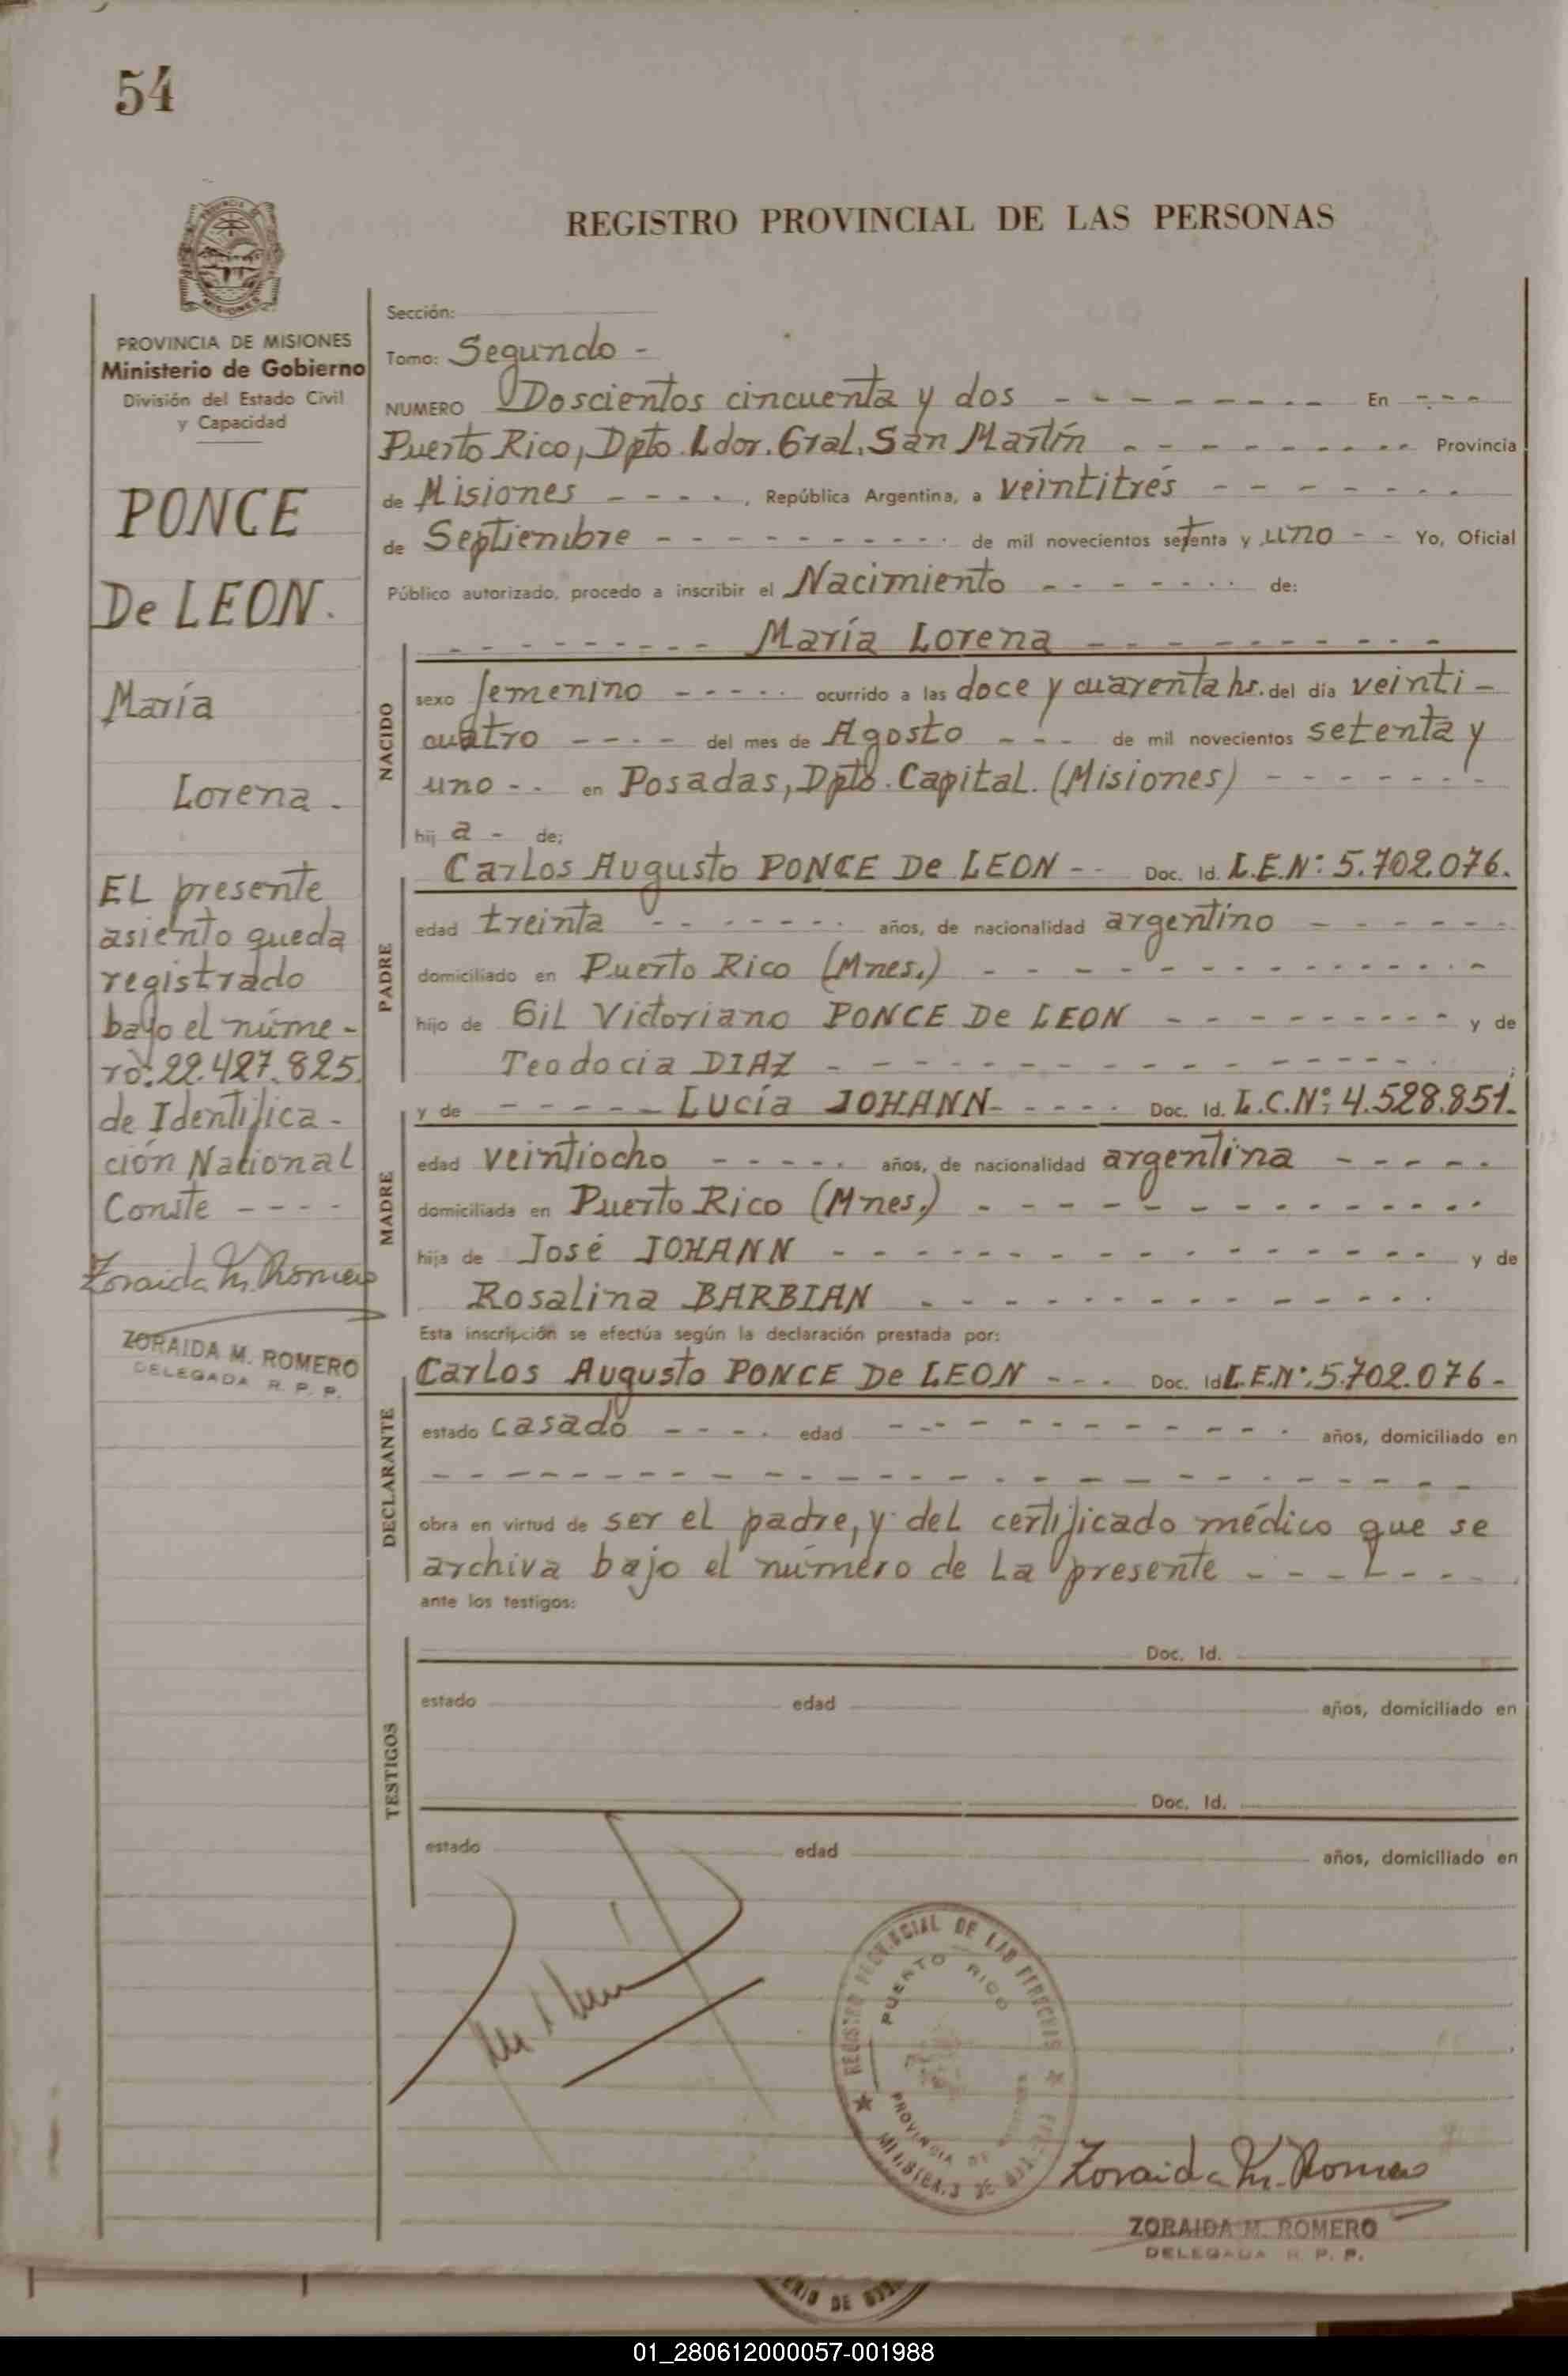 54
REGISTRO PROVINCIAL DE LAS PERSONAS
PROVINCIA DE MISIONES
Ministerio de Gobierno
División del Estado Civil
y Capacidad
PONCE
De LEON.
María
Lorena -
EL presente
asiento queda
registrado
bajo el núme-
ro: 22.427.825
de Identifica-
ción National
Conste - - - -
Zoraida M. Romero
ZORAIDA M. ROMERO
DELEGADA R. P. P.
Sección:
Tomo: Segundo -
NUMERO Doscientos cincuenta y dos - - - - - - - - En - - -
Puerto Rico, Dpto. Ldor. Gral. San Martín - - - - - - - - - Provincia
de Misiones - - - - , República Argentina, a veintitrés - - - - - - -
de Septiembre - - - - - - - - - - de mil novecientos setenta y uno - - Yo, Oficial
Público autorizado, procedo a inscribir el Nacimiento - - - - - - - de:
- - - - - - - - María Lorena - - - - - - - - - -
NACIDO
sexo femenino - - - - - ocurrido a las doce y cuarenta hs. del día veinti-
cuatro - - - - del mes de Agosto - - - de mil novecientos setenta y
uno - - en Posadas, Dpto. Capital. (Misiones) - - - - - - -
hij a - de;
PADRE
Carlos Augusto PONCE De LEON - - Doc. Id. L.E.N: 5.702.076.
edad treinta - - - - - - - años, de nacionalidad argentino - - - - - -
domiciliado en Puerto Rico (Mnes.) - - - - - - - - - - - - - -
hijo de Gil Victoriano PONCE De LEON - - - - - - - - - - y de
Teodocia DIAZ - - - - - - - - - - - - - - ;
MADRE
y de - - - - - Lucía JOHANN - - - - - Doc. Id. L.C.N°: 4.528.851.
edad veintiocho - - - - - años, de nacionalidad argentina - - - - -
domiciliada en Puerto Rico (Mnes.) - - - - - - - - - - - - -
hija de José JOHANN - - - - - - - - - - - - - - - y de
Rosalina BARBIAN - - - - - - - - - - - - -
Esta inscripción se efectúa según la declaración prestada por:
DECLARANTE
Carlos Augusto PONCE De LEON - - - Doc. Id L.E.N: 5.702.076-
estado casado - - - - edad - - - - - - - - - - - años, domiciliado en
- - - - - - - - - - - - - - - - - - - - - - - -
obra en virtud de ser el padre, y del certificado médico que se
archiva bajo el número de la presente - - - - - -
ante los testigos:
TESTIGOS
Doc. Id.
estado edad años, domiciliado en
Doc. Id.
estado edad años, domiciliado en
REGISTRO PROVINCIAL DE LAS PERSONAS
PUERTO RICO
PROVINCIA DE
Zoraida M. Romero
ZORAIDA M. ROMERO
DELEGADA R. P. P.
01_280612000057-001988